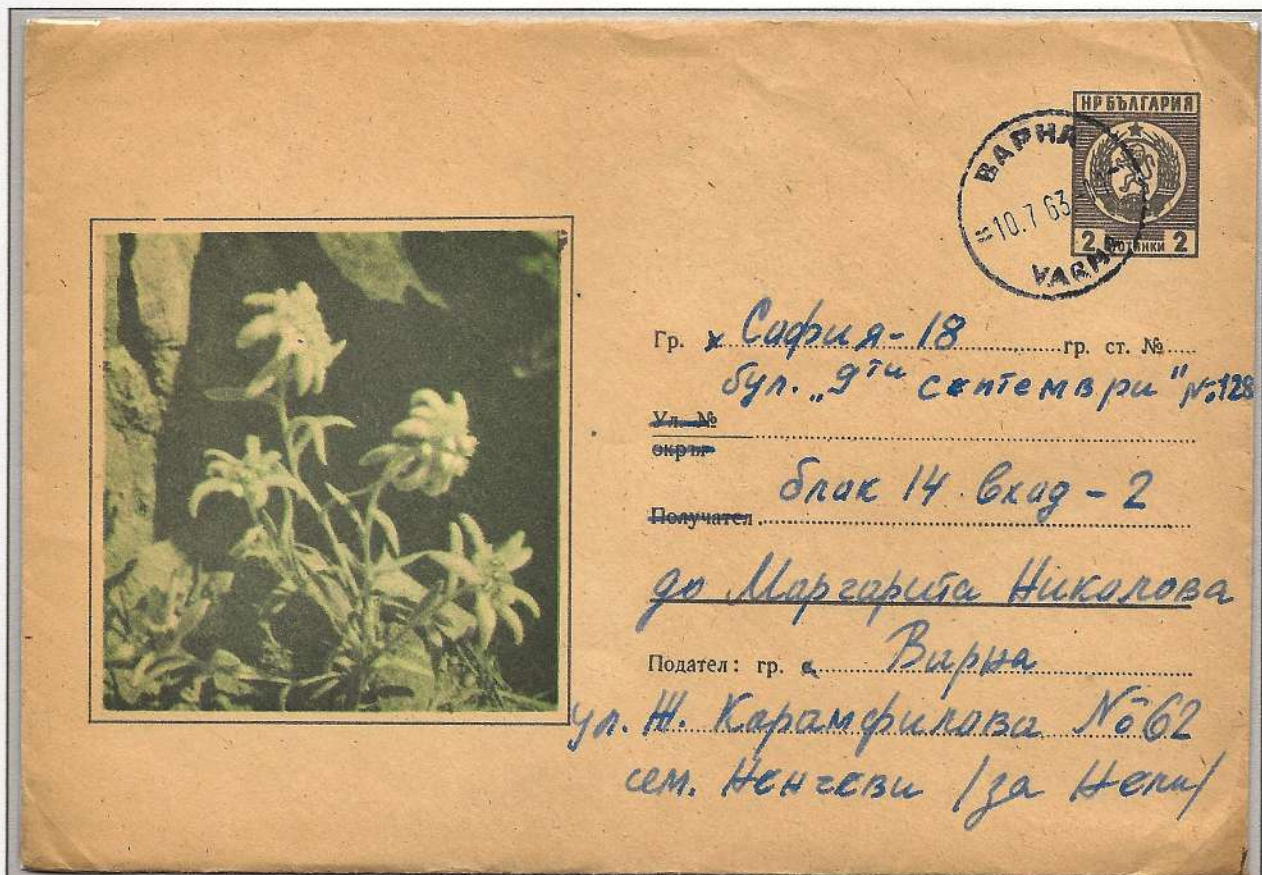 НР БЪЛГАРИЯ
ВАРНА
10.7.63
VARNA
2 СТОТИНКИ 2
Гр. София-18 гр. ст. №
бул. „9ти септември" №128
Ул. №
окръг
блок 14 вход - 2
Получател
до Маргарита Николова
Подател: гр. Варна
ул. Ж. Карамфилова №62
сем. Ненчеви /за Нели/